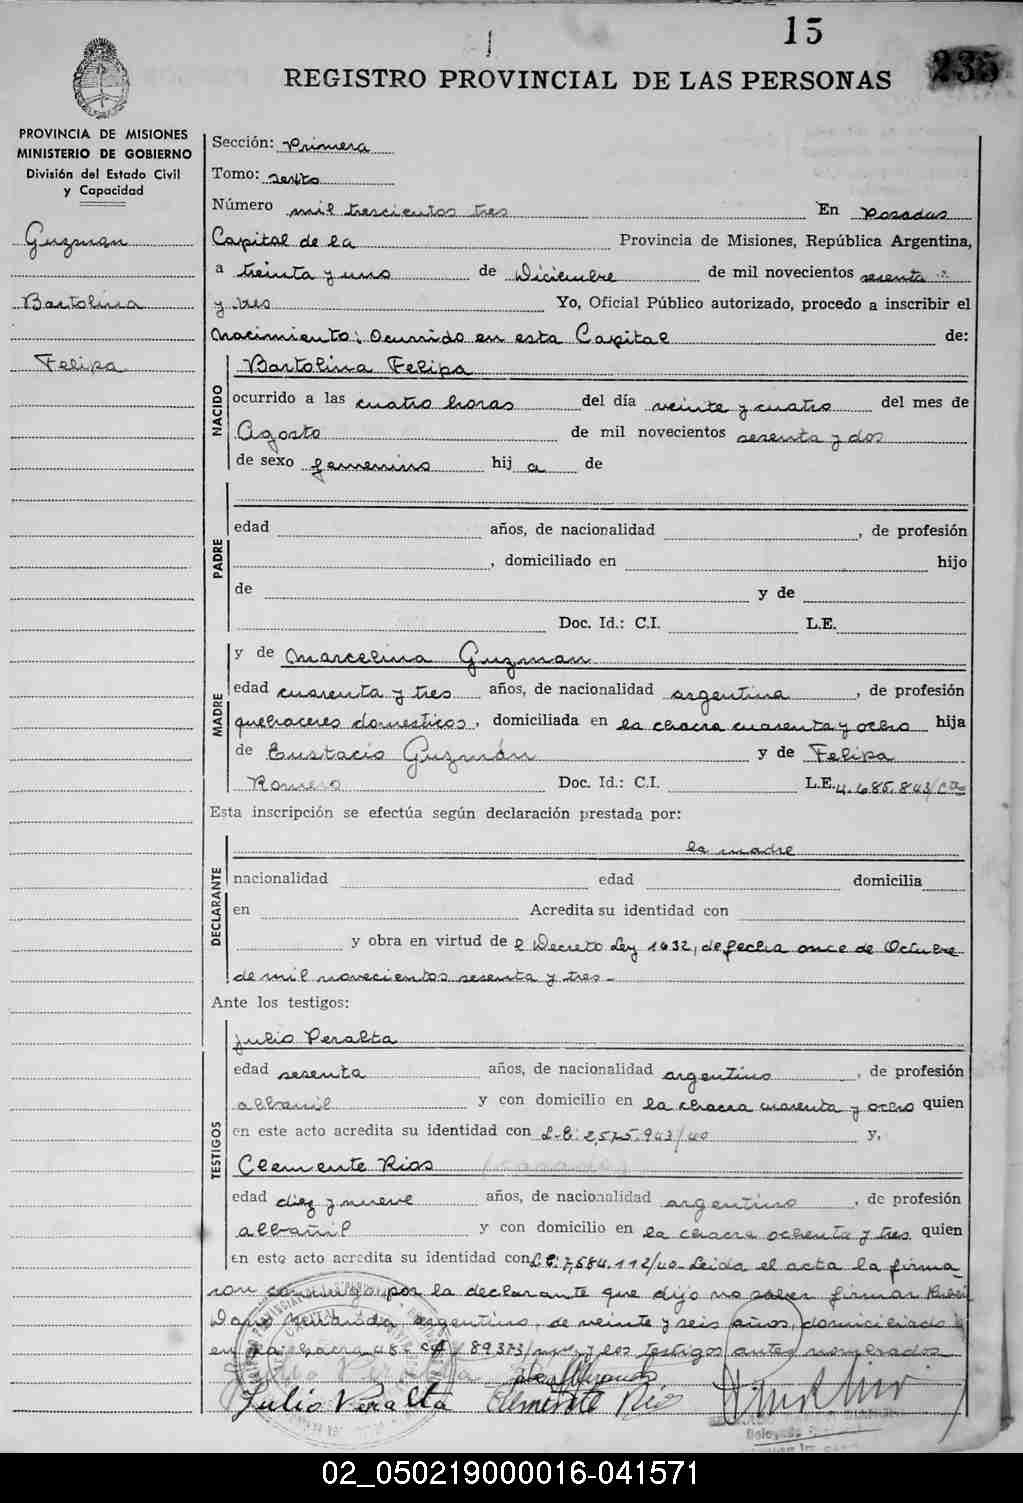 15
235
REGISTRO PROVINCIAL DE LAS PERSONAS
PROVINCIA DE MISIONES
MINISTERIO DE GOBIERNO
División del Estado Civil
y Capacidad
Guzman
Bartolina
Felipa
Sección: Primera
Tomo: sexto
Número mil trescientos tres En Posadas
Capital de la Provincia de Misiones, República Argentina,
a treinta y uno de Diciembre de mil novecientos sesenta
y tres Yo, Oficial Público autorizado, procedo a inscribir el
Nacimiento: Ocurrido en esta Capital de:
NACIDO
Bartolina Felipa
ocurrido a las cuatro horas del día veinte y cuatro del mes de
Agosto de mil novecientos sesenta y dos
de sexo femenino hij a de
PADRE
edad años, de nacionalidad , de profesión
, domiciliado en hijo
de y de
Doc. Id.: C.I. L.E.
MADRE
y de Marcelina Guzman
edad cuarenta y tres años, de nacionalidad argentina , de profesión
quehaceres domesticos , domiciliada en la chacra cuarenta y ocho hija
de Eustacio Guzmán y de Felipa
Romero Doc. Id.: C.I. L.E. 4.685.843/
Esta inscripción se efectúa según declaración prestada por:
DECLARANTE
la madre
nacionalidad edad domicilia
en Acredita su identidad con
y obra en virtud de l Decreto Ley 1632, de fecha once de Octubre
de mil novecientos sesenta y tres-
Ante los testigos:
TESTIGOS
Julio Peralta
edad sesenta años, de nacionalidad argentino , de profesión
albañil y con domicilio en la chacra cuarenta y ocho quien
en este acto acredita su identidad con L.E: 2,575.943/40 y,
Clemente Rios
edad diez y nueve años, de nacionalidad argentino , de profesión
albañil y con domicilio en la chacra ochenta y tres quien
en este acto acredita su identidad con L.E: 7,584.112/40- Leida el acta la firma_
ron conmigo por la declarante que dijo no saber firmar Ruben
Miranda argentino, de veinte y seis años, domiciliado
en la chacra 48 89373/ y los testigos antes nombrados
Julio Peralta Clemente Rios
02_050219000016-041571